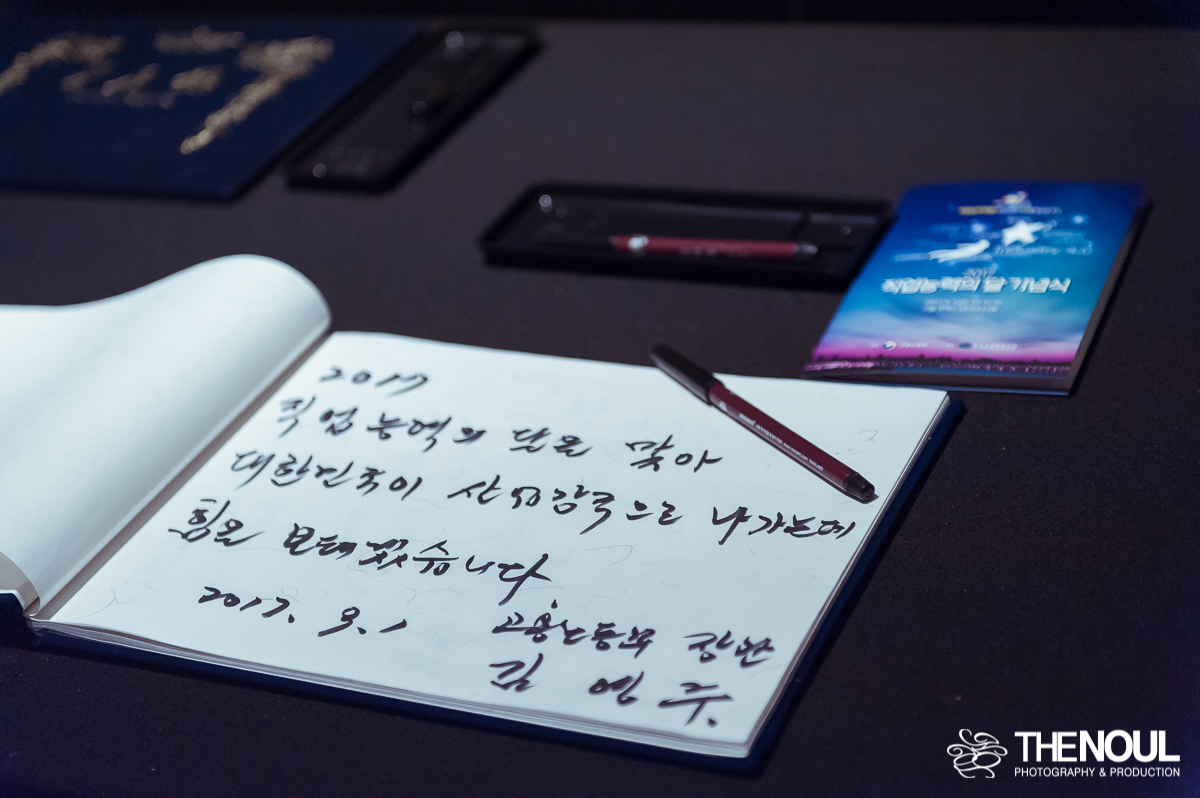 2017
직업능력의 달을 맞아
대한민국이 산업강국으로 나가는데
힘을 보태겠습니다
2017. 9. 1
고용노동부 장관
김 영 주
Industry 4.0
2017
직업능력의 달 기념식
THENOUL
PHOTOGRAPHY & PRODUCTION